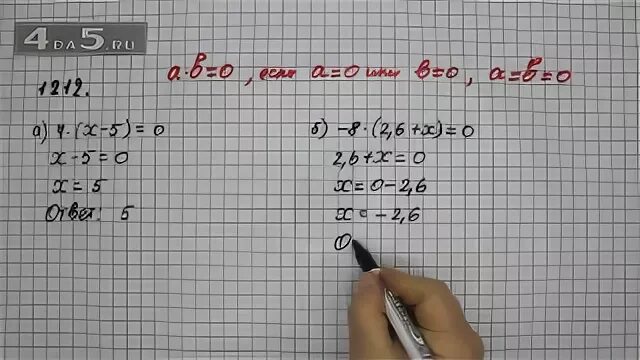 4DA5.RU
a·b=0, если a=0 или b=0, a=b=0
1212.
а) 4·(x-5)=0
x-5=0
x=5
Ответ: 5
б) -8·(2,6+x)=0
2,6+x=0
x=0-2,6
x=-2,6
О